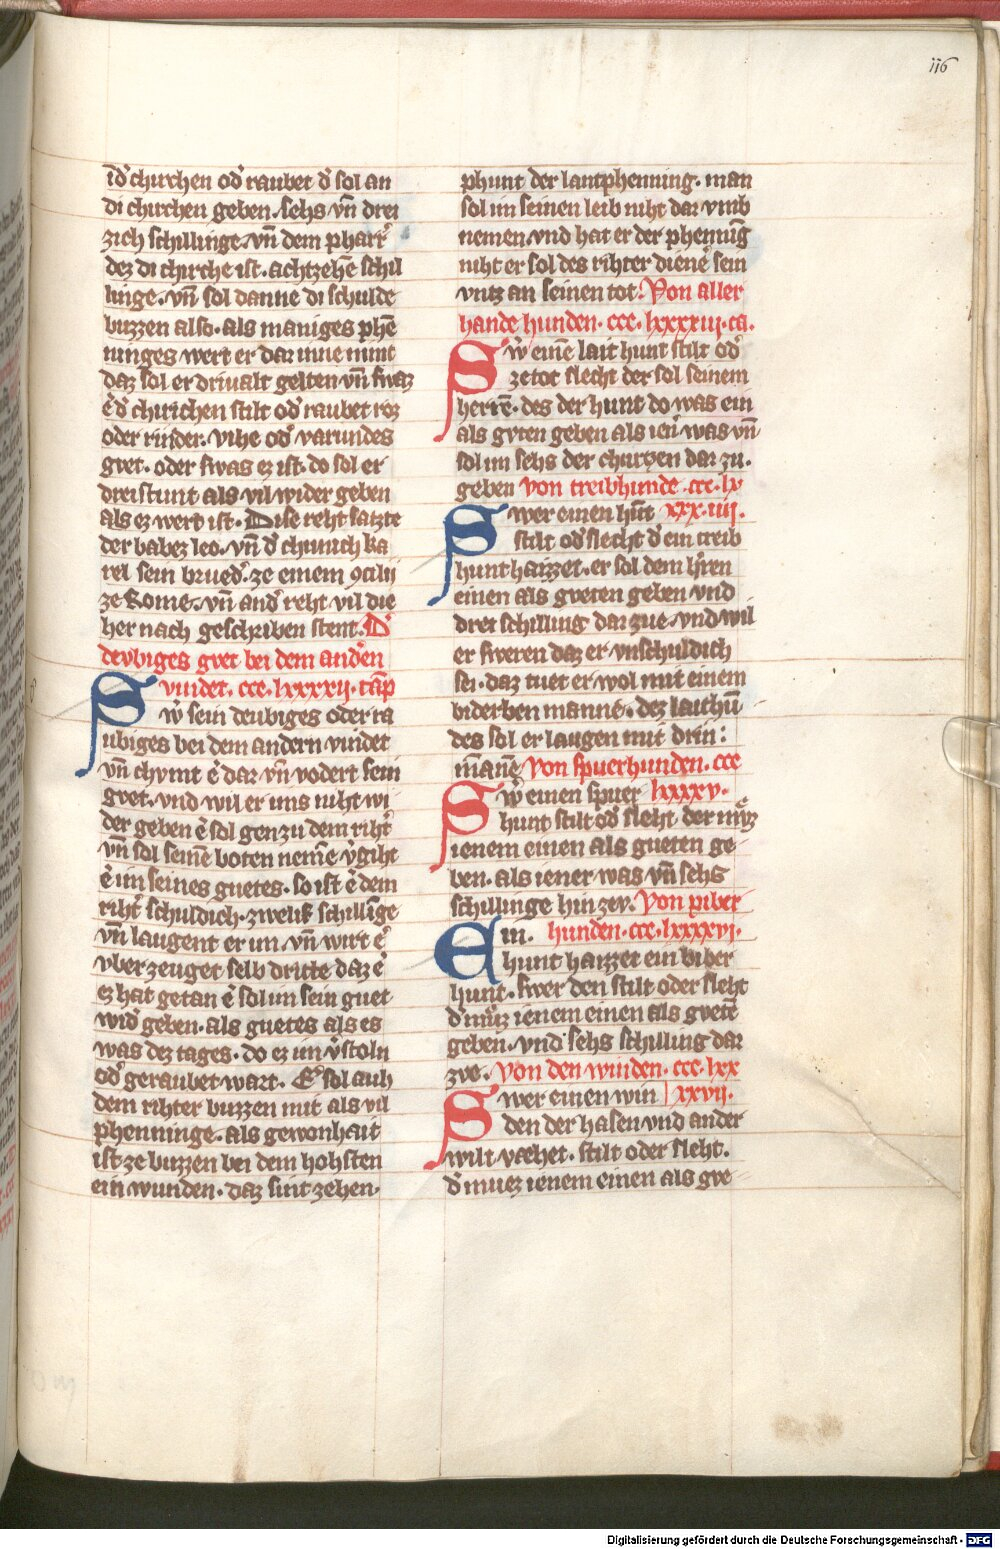 116
ī dˀ chirchen odˀ raubet dˀ sol an
di chirchen geben. sehs vn̄ drei
zich schillinge. vn̄ dem pharrˀ
dez di chirche ist. achtzehē schil
linge. vn̄ sol danne di schulde
buzzen also. als maniges phē
ninges wert er dar inne nimt
daz sol er drivalt gelten vn̄ swaz
ēdˀ chirichen stilt odˀ raubet roz
oder rinder. vihe odˀ varundes
gvet. oder swas ez ist. do sol er
dreistunt als vil wider geben
als ez wert ist. Dise reht satzte
der babez leo. vn̄ dˀ chunich ka
rel sein bruedˀ. ze einem ꝯcilij
ze Rome. vn̄ andˀ reht vil die
her nach geschriben stent. Dˀ
devbiges gvet bei dem andˀen
vindet. ccc. lxxxxii. cap̄
Swˀ sein deubiges oder ra
ubiges bei dem andern vindet
vn̄ chvmt ēˀ dar vn̄ vodert sein
gvet. vnd wil er ims niht wi
der geben ēˀ sol gen zu dem rihtˀ
vn̄ sol seinē boten nemē vˀgiht
ēˀ im seines guetes. so ist ēˀ dem
rihtˀ schuldich. zwelif schillīge
vn̄ laugent er im vn̄ wirt ēˀ
vber zeuget selb dritte daz ēˀ
ez hat getan ēˀ sol im sein guet
widˀ geben. als guetes als es
was dez tages. do ez im vˀstoln
odˀ geraubet wart. Eˀ sol auh
dem rihter buzzen mit als vil
phenninge. als gewonhait
ist ze buzzen bei dem hohsten
ein wunden. daz sint zehen.
phunt der lantphenning. man
sol im seinen leib niht dar vmb
nemen. vnd hat er der phennīg
niht er sol des rihter dienēˀ sein
vntz an seinen tot. Von aller
hande hunden. ccc. lxxxxiii. ca.
Swˀ einē lait hunt stilt odˀ
ze tot slecht der sol seinem
herrē. des der hunt do was ein
als gvten geben als ienˀ was vn̄
sol im sehs der churzen dar zu.
geben von treibhunde. ccc. lx
Swer einen hūt xxx. iiii.
stilt odˀ slecht dˀ ein treib
hunt haizzet. er sol dem hˀren
einen als gveten geben vnd
drei schilling dar zue. vnd wil
er sweren daz er vnschuldich
sei. daz tuet er wol mit einem
biderben manne. dez lauchū
des sol er laugen mit drin:
mānē Von spuerhunden. ccc
Swˀ einen spuer lxxxxv.
hunt stilt odˀ sleht. der mūz
ienem einen als gueten ge
ben. als iener was vn̄ sehs
schillinge hin zev. Von piber
Ein. hunden. ccc. lxxxxvi.
hunt haizzet ein biber
hunt. swer den stilt oder sleht
dˀ mūz ienem einen als gvetē
geben. vnd sehs schilling dar
zve. Von den winden. ccc. lxx
Swer einen win xxvii.
den der hasen vnd ander
wilt væhet. stilt oder sleht.
dˀ muez ienem einen als gve
Digitalisierung gefördert durch die Deutsche Forschungsgemeinschaft - DFG